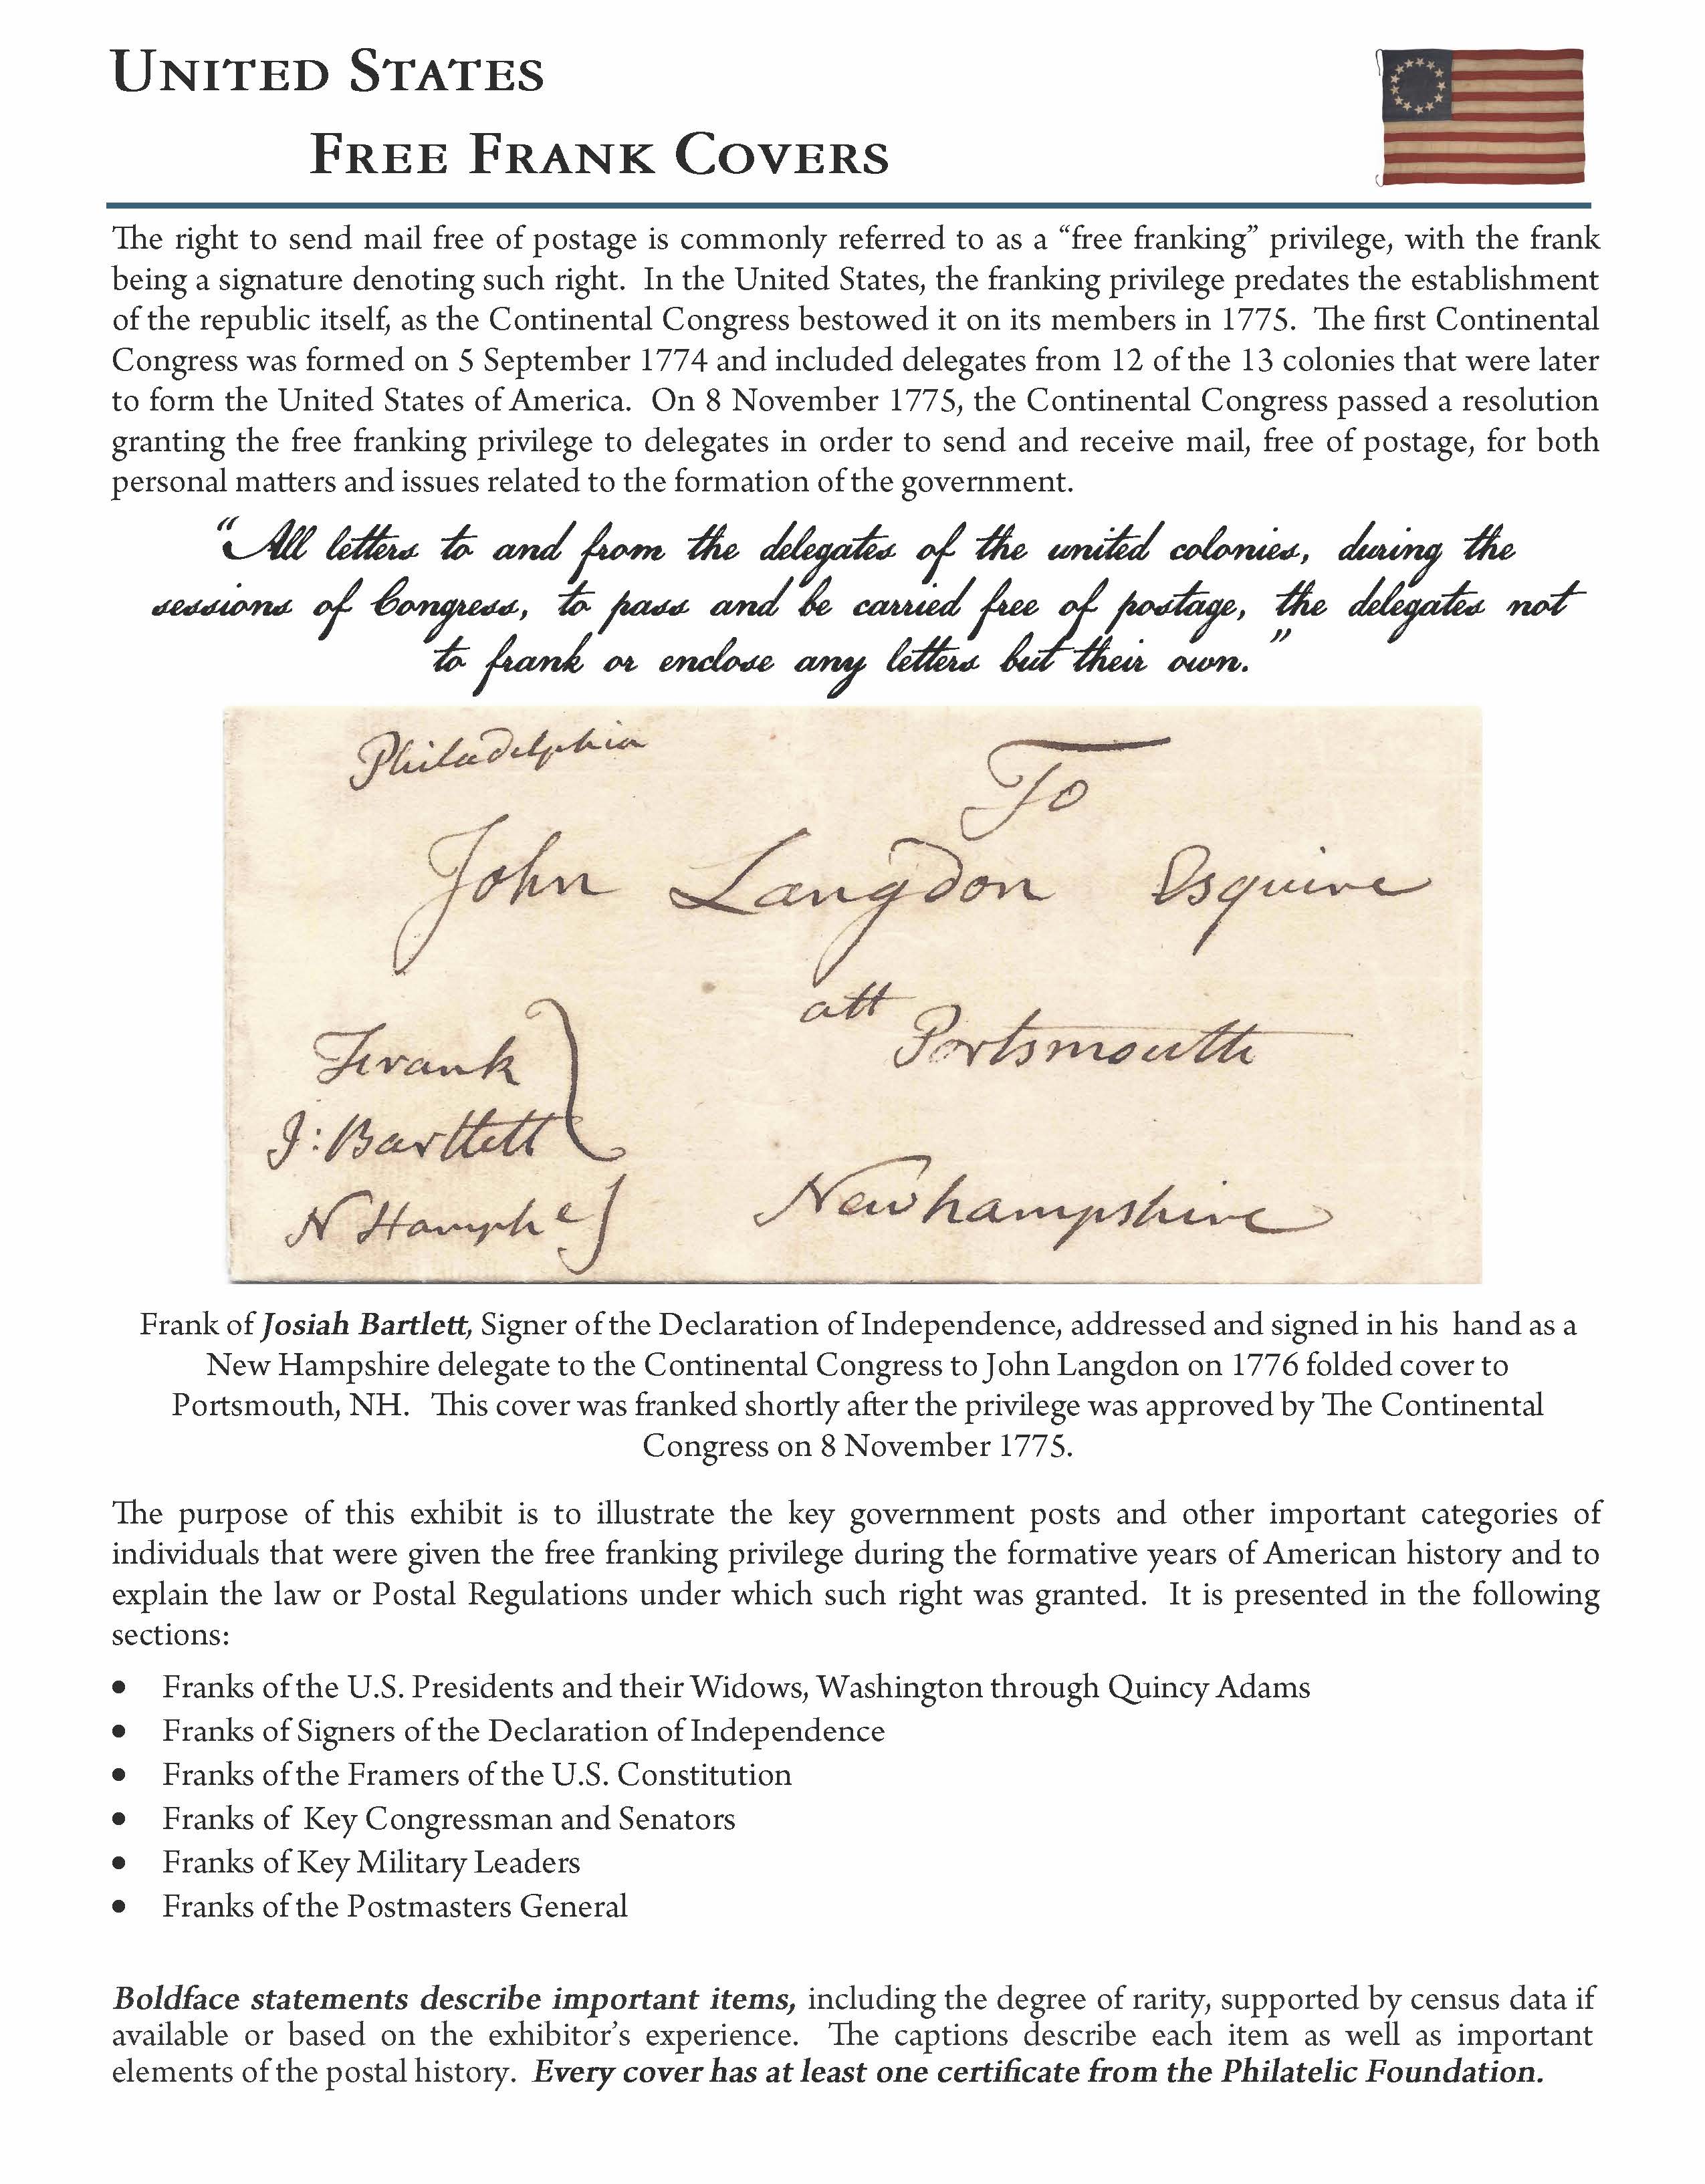 United States
Free Frank Covers
The right to send mail free of postage is commonly referred to as a “free franking” privilege, with the frank
being a signature denoting such right. In the United States, the franking privilege predates the establishment
of the republic itself, as the Continental Congress bestowed it on its members in 1775. The first Continental
Congress was formed on 5 September 1774 and included delegates from 12 of the 13 colonies that were later
to form the United States of America. On 8 November 1775, the Continental Congress passed a resolution
granting the free franking privilege to delegates in order to send and receive mail, free of postage, for both
personal matters and issues related to the formation of the government.
“All letters to and from the delegates of the united colonies, during the
sessions of Congress, to pass and be carried free of postage, the delegates not
to frank or enclose any letters but their own.”
Philadelphia
To
John Langdon Esquire
att
Portsmouth
Frank
J: Bartlett
N Hamphe
Newhampshire
Frank of Josiah Bartlett, Signer of the Declaration of Independence, addressed and signed in his hand as a
New Hampshire delegate to the Continental Congress to John Langdon on 1776 folded cover to
Portsmouth, NH. This cover was franked shortly after the privilege was approved by The Continental
Congress on 8 November 1775.
The purpose of this exhibit is to illustrate the key government posts and other important categories of
individuals that were given the free franking privilege during the formative years of American history and to
explain the law or Postal Regulations under which such right was granted. It is presented in the following
sections:
• Franks of the U.S. Presidents and their Widows, Washington through Quincy Adams
• Franks of Signers of the Declaration of Independence
• Franks of the Framers of the U.S. Constitution
• Franks of Key Congressman and Senators
• Franks of Key Military Leaders
• Franks of the Postmasters General
Boldface statements describe important items, including the degree of rarity, supported by census data if
available or based on the exhibitor’s experience. The captions describe each item as well as important
elements of the postal history. Every cover has at least one certificate from the Philatelic Foundation.